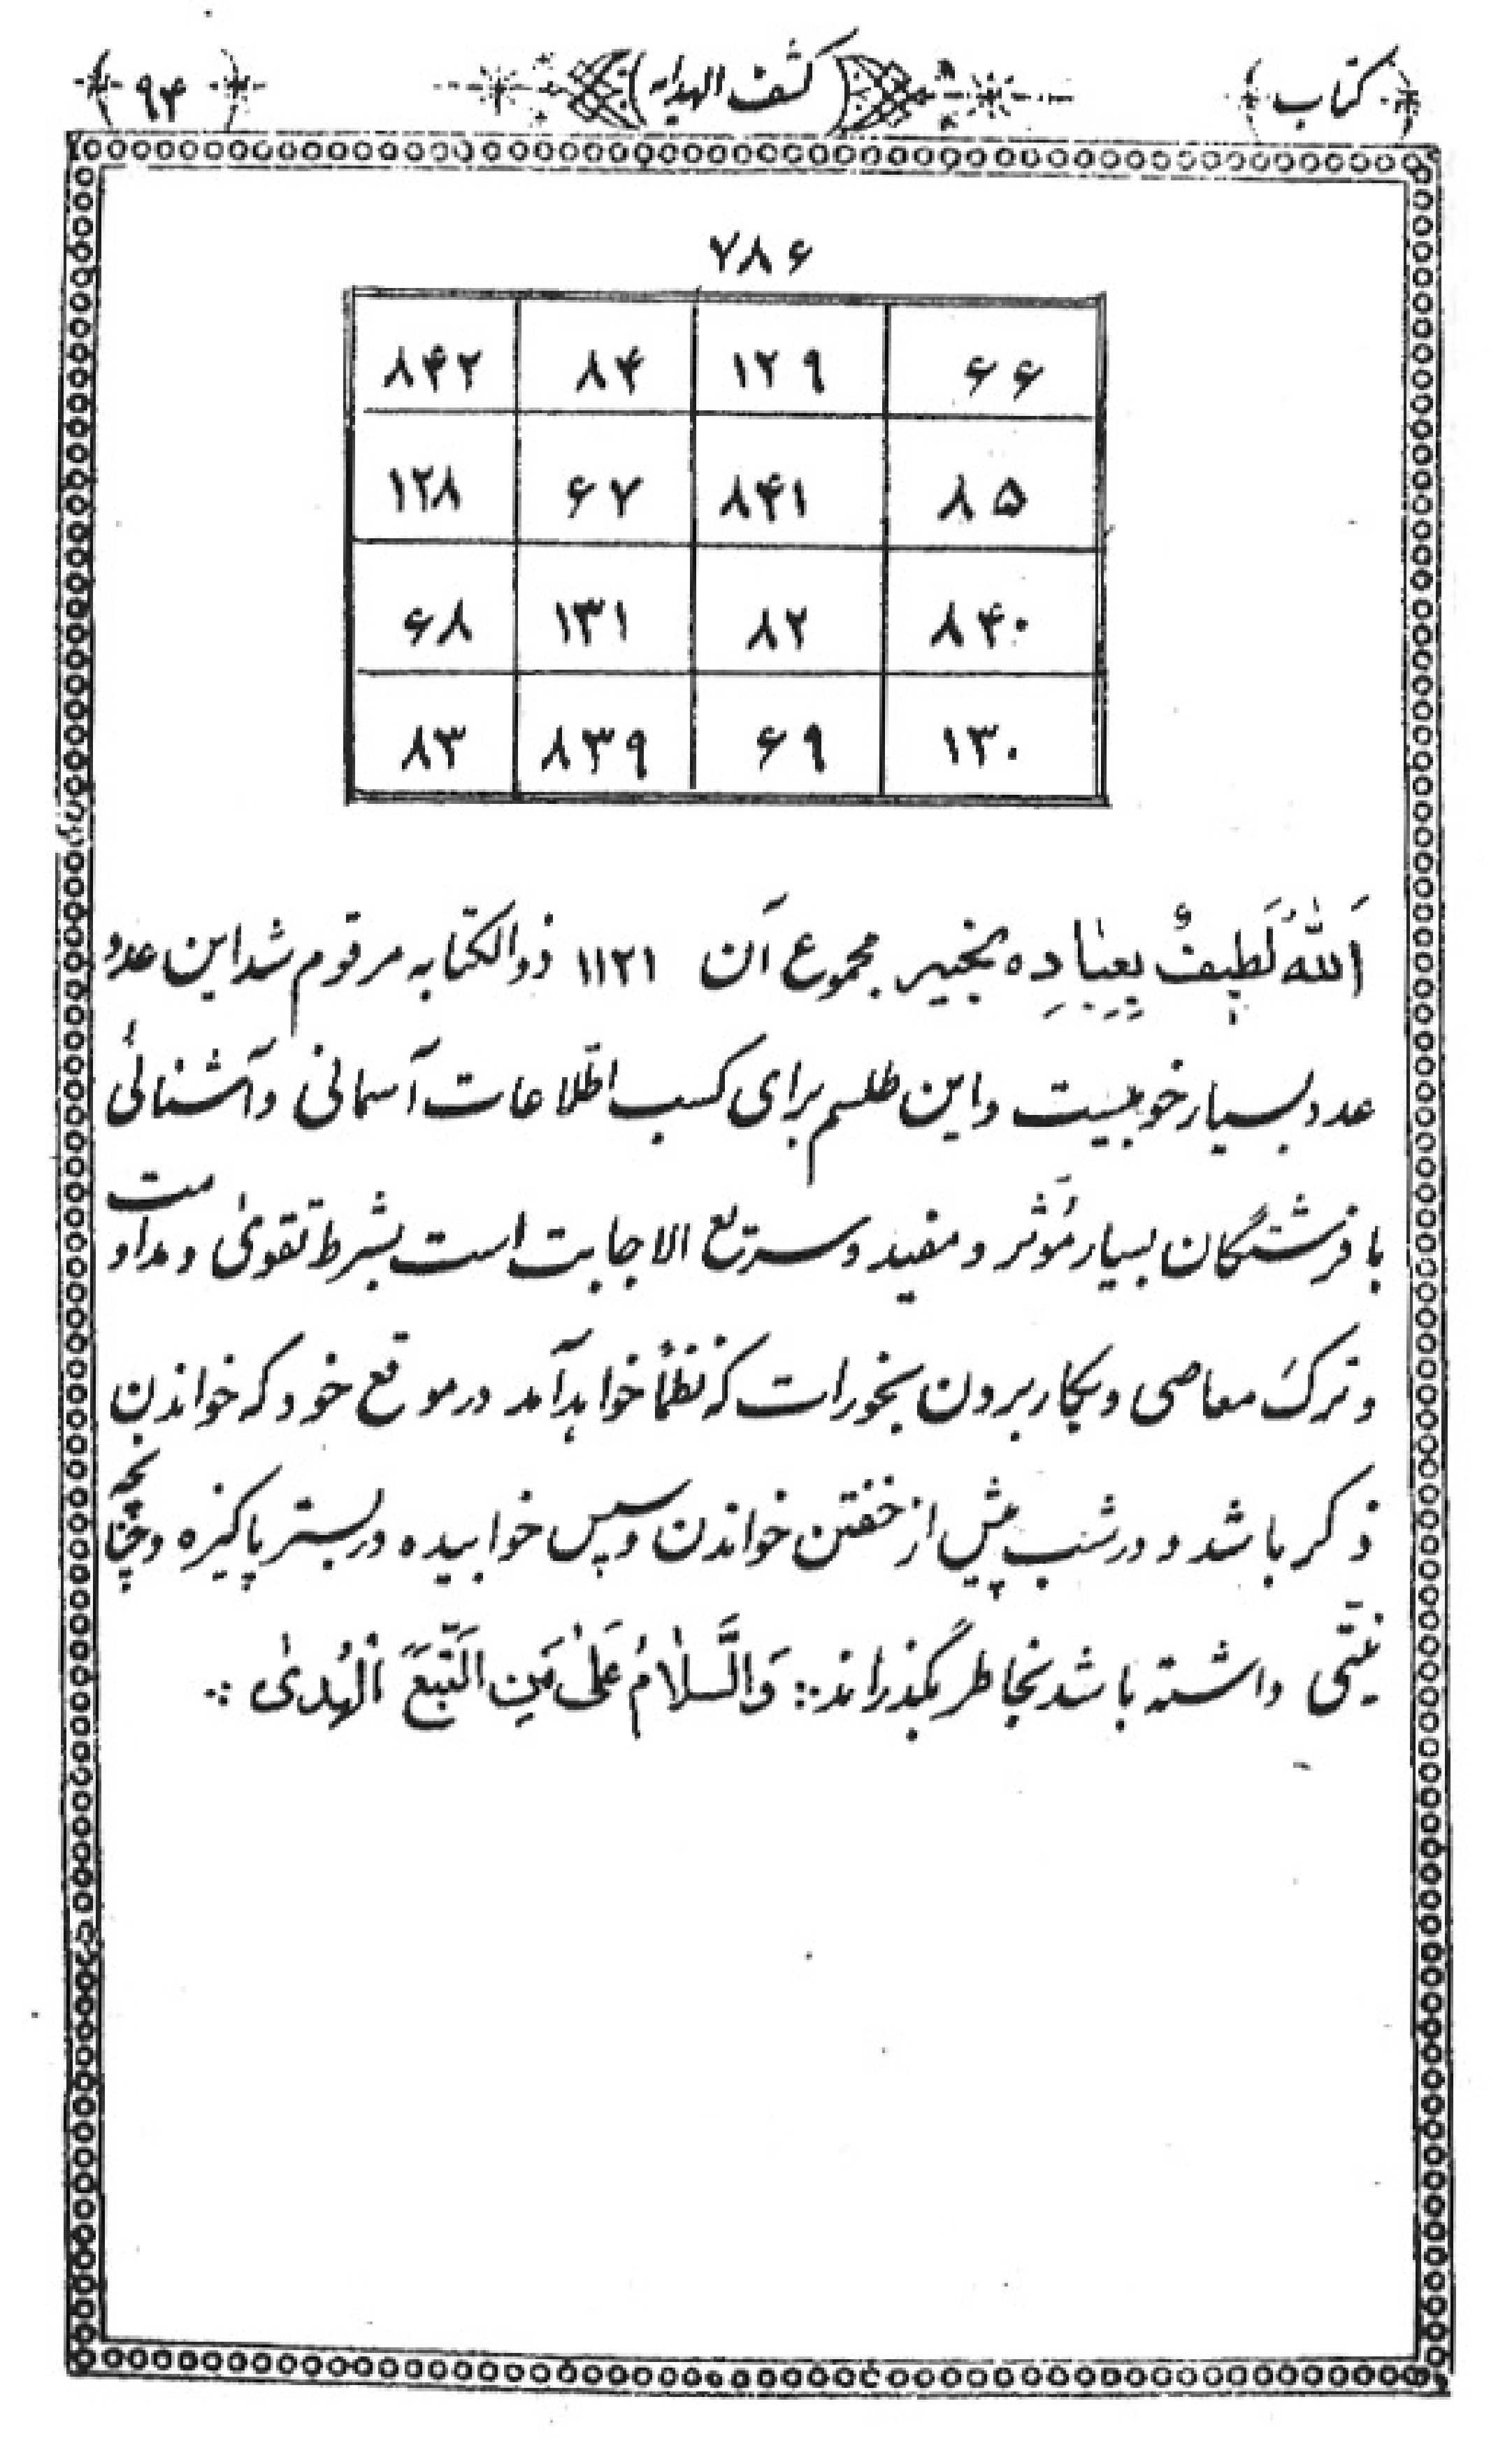 کتاب کشف الهدایه ۹۴
۷۸۶
۶۶ ۱۲۹ ۸۴ ۸۴۲
۸۵ ۸۴۱ ۶۷ ۱۲۸
۸۴۰ ۸۲ ۱۳۱ ۶۸
۱۳۰ ۶۹ ۸۳۹ ۸۳
اَللّٰهُ لَطیفٌ بِعِبٰادِه بخبیر مجموع آن ۱۱۲۱ ذوالکتابه مرقوم شد این عدد
عدد بسیار خوبیست و این طلسم برای کسب اطّلاعات آسمانی و آشنائی
با فرشتگان بسیار مؤثر و مفید و سریع الاجابت است بشرط تقویٰ و مداومت
و ترک معاصی و بکار بردن بخورات که نظماً خواهد آمد در موقع خود که خواندن
ذکر باشد و در شب پیش از خفتن خواندن و سپس خوابیده در بستر پاکیزه و چنانچه
نیّتی داشته باشد بخاطر بگذراند :: وَالسَّلٰامُ عَلیٰ مَنِ اتَّبَعَ الْهُدیٰ ::